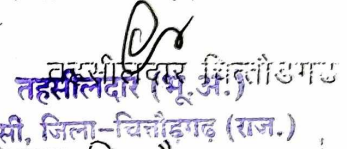 तहसीलदार चित्तौडगढ
तहसीलदार (भू.अ.)
सी, जिला-चित्तौड़गढ़ (राज.)